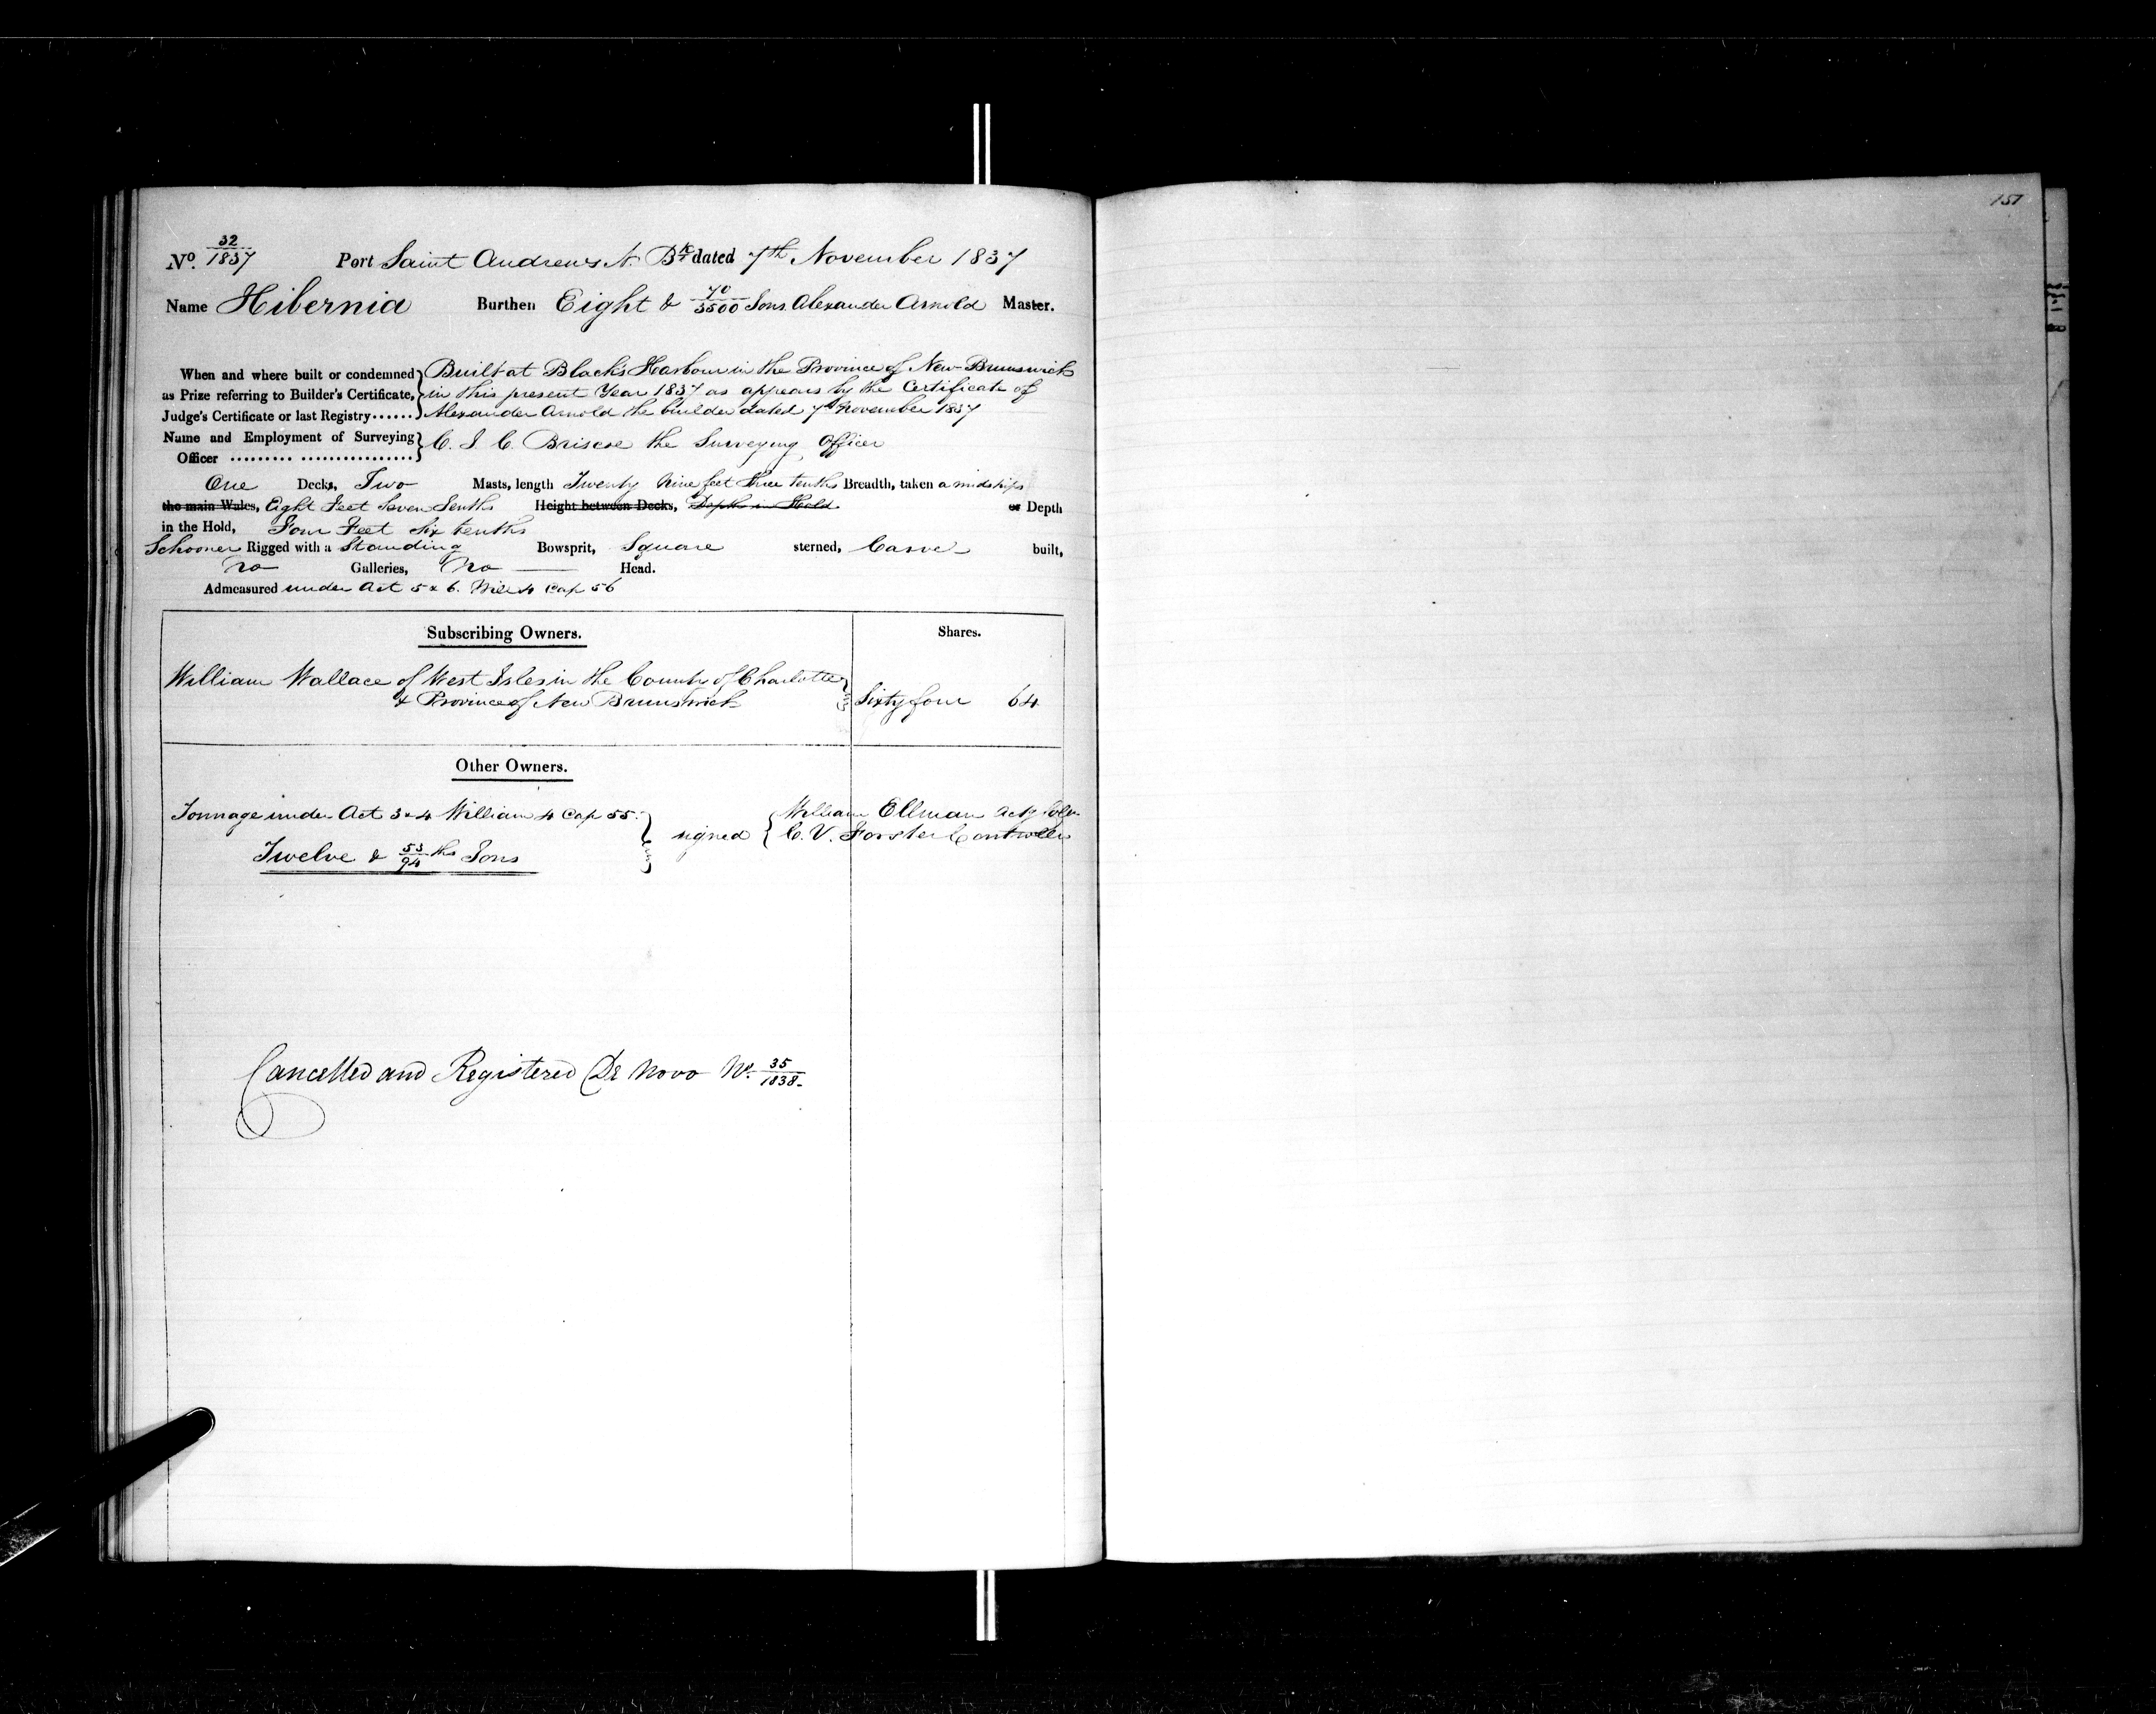 151
No. 32/1837 Port Saint Andrews N. Bk dated 7th November 1837
Name Hibernia Burthen Eight & 70/3500 Tons Alexander Arnold Master.
When and where built or condemned as Prize referring to Builder's Certificate, Judge's Certificate or last Registry......
Built at Black's Harbour in the Province of New-Brunswick
in this present Year 1837 as appears by the Certificate of
Alexander Arnold the builder dated 7th November 1837
Name and Employment of Surveying Officer ......... ................
C. J. C. Briscoe the Surveying Officer
One Decks, Two Masts, length Twenty Nine feet three tenths Breadth, taken amidships
the main Wales, Eight Feet Seven Tenths Height between Decks, Depth in Hold or Depth
in the Hold, Four Feet Six tenths
Schooner Rigged with a Standing Bowsprit, Square sterned, Carvel built,
No Galleries, No Head.
Admeasured under Act 5 & 6. Will 4 Cap 56
Subscribing Owners. Shares.
William Wallace of West Isles in the County of Charlotte
& Province of New Brunswick Sixty four 64
Other Owners.
Tonnage under Act 3 & 4 William 4 Cap 55.
Twelve & 53/94 ths Tons
signed
William Ellman Actg Collr
C. V. Forster Controller
Cancelled and Registered De Novo No. 35/1838.